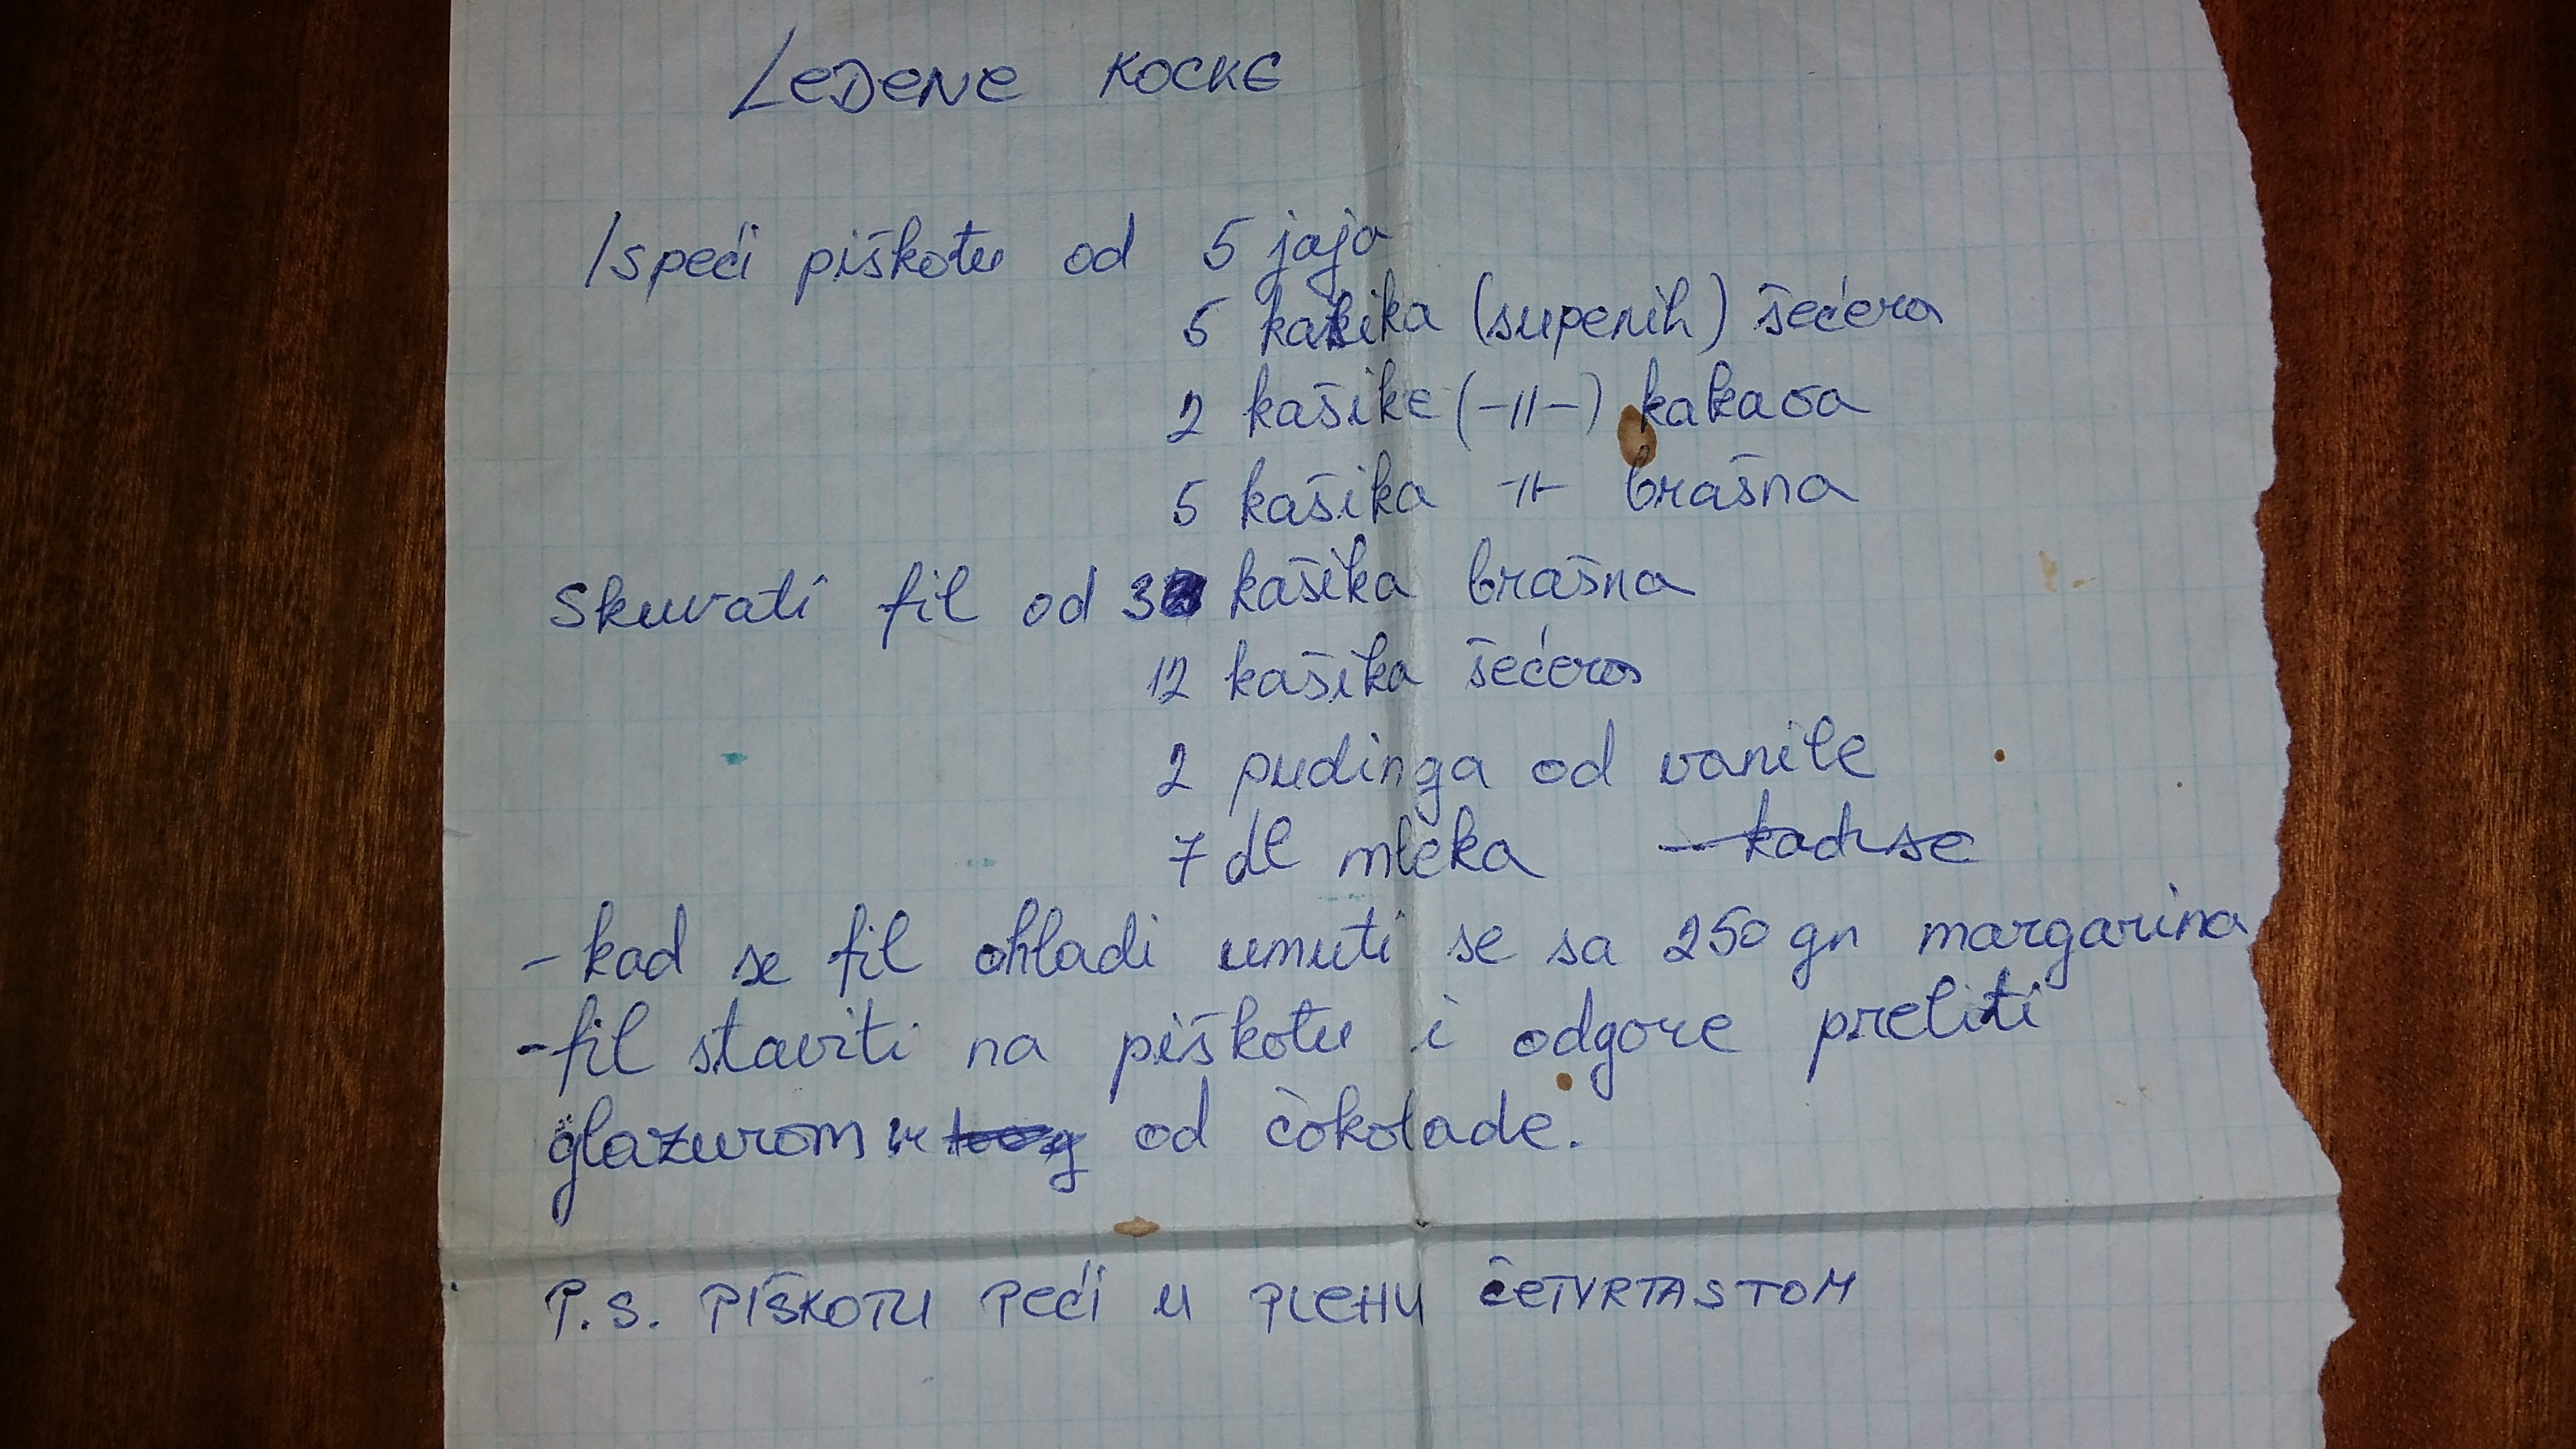 Ledene kocke
Ispeći piškotu od 5 jaja
5 kašika (supenih) šećera
2 kašike (-11-) kakaoa
5 kašika -11- brašna
Skuvati fil od 3 kašika brašna
12 kašika šećera
2 pudinga od vanile
7 dl mleka - kad se
- kad se fil ohladi umuti se sa 250 gr margarina
- fil staviti na piškotu i odgore preliti
glazurom od čokolade.
P.S. PIŠKOTU PEĆI U PLEHU ČETVRTASTOM